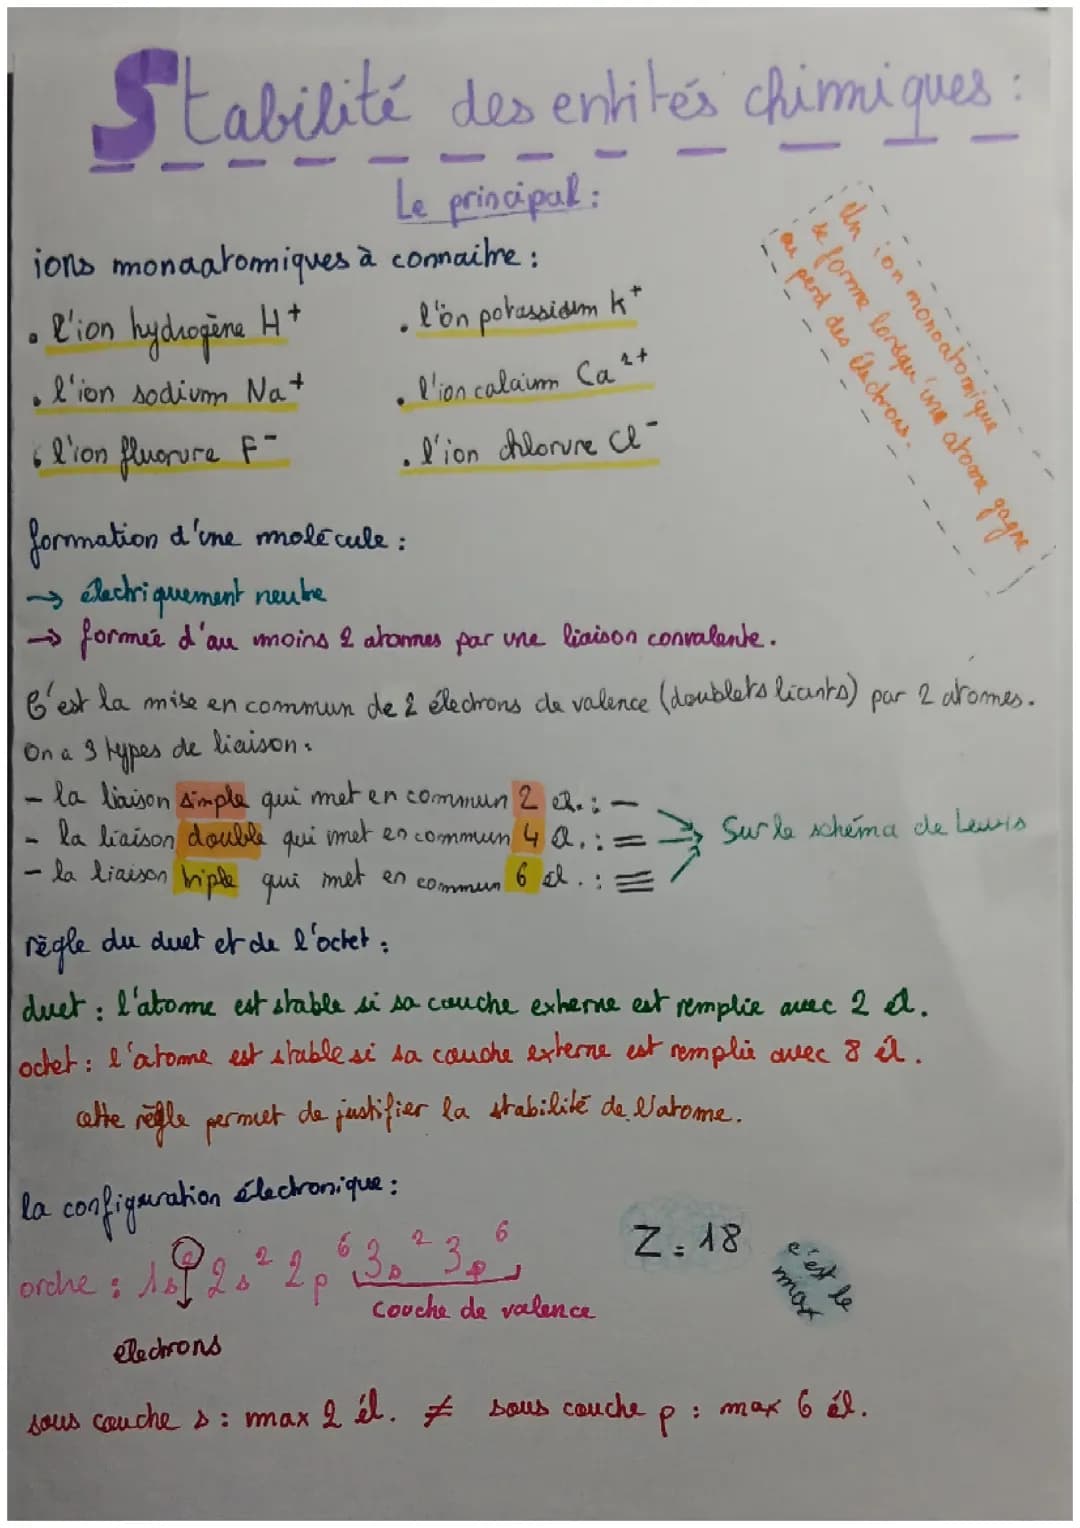 Stabilité des entités chimiques :
Le principal :
ions monoatomiques à connaitre :
• l'ion hydrogène H+
• l'ion sodium Na+
• l'ion fluorure F-
• l'ion potassium K+
• l'ion calcium Ca2+
• l'ion chlorure Cl-
Un ion monoatomique
se forme lorsqu'une atome gagne
ou perd des électrons.
formation d'une molécule :
→ électriquement neutre
→ formée d'au moins 2 atomes par une liaison convalente.
C'est la mise en commun de 2 électrons de valence (doublets liants) par 2 atomes.
On a 3 types de liaison :
- la liaison simple qui met en commun 2 él. : —
- la liaison double qui met en commun 4 él. : =
- la liaison triple qui met en commun 6 él. : ≡
Sur le schéma de Lewis
règle du duet et de l'octet :
duet : l'atome est stable si sa couche externe est remplie avec 2 él.
octet : l'atome est stable si sa couche externe est remplie avec 8 él.
cette règle permet de justifier la stabilité de l'atome.
la configuration électronique :
ordre : 1s² 2s² 2p⁶ 3s² 3p⁶
couche de valence
électrons
Z = 18
c'est le
max
sous couche s : max 2 él. ≠ sous couche p : max 6 él.